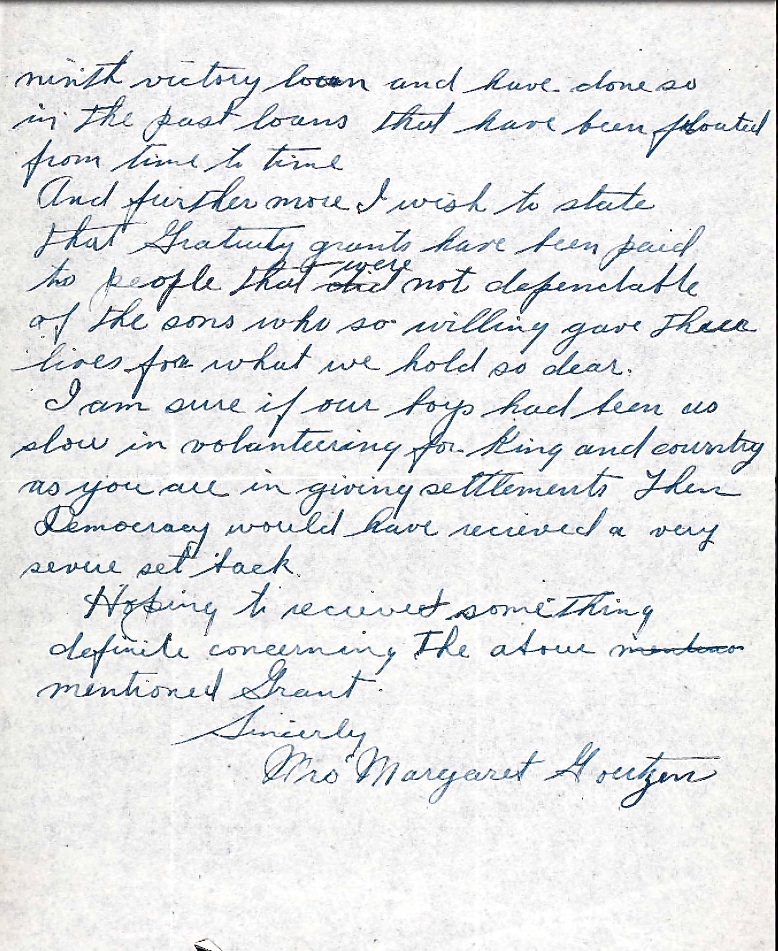 ninth victory loan and have done so
in the past loans that have been floated
from time to time
And further more I wish to state
that Gratuity grants have been paid
to people that did were not dependable
of the sons who so willing gave their
lives for what we hold so dear.
I am sure if our boys had been as
slow in volunteering for King and country
as you are in giving settlements then
Democracy would have recieved a very
severe set back.
Hoping to recieved something
definite concerning the above
mentioned Grant.
Sincerly
Mrs Margaret Goertzen